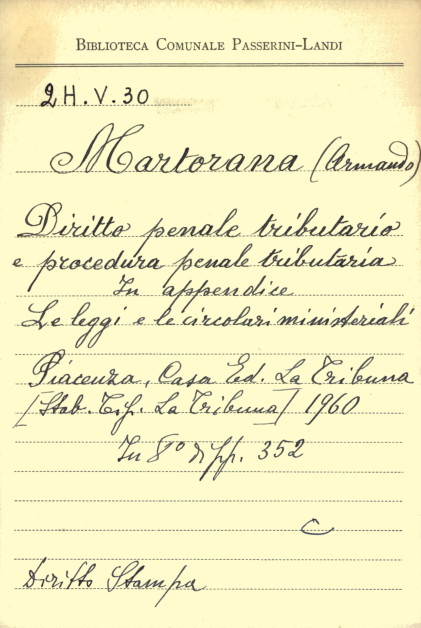 BIBLIOTECA COMUNALE PASSERINI-LANDI
2H.V.30
Martorana (Armando)
Diritto penale tributario
e procedura penale tributaria
In appendice
Le leggi e le circolari ministeriali
Piacenza, Casa Ed. La Tribuna
[Stab. Tip. La Tribuna] 1960
In 8° di pp. 352
C
Diritto Stampa